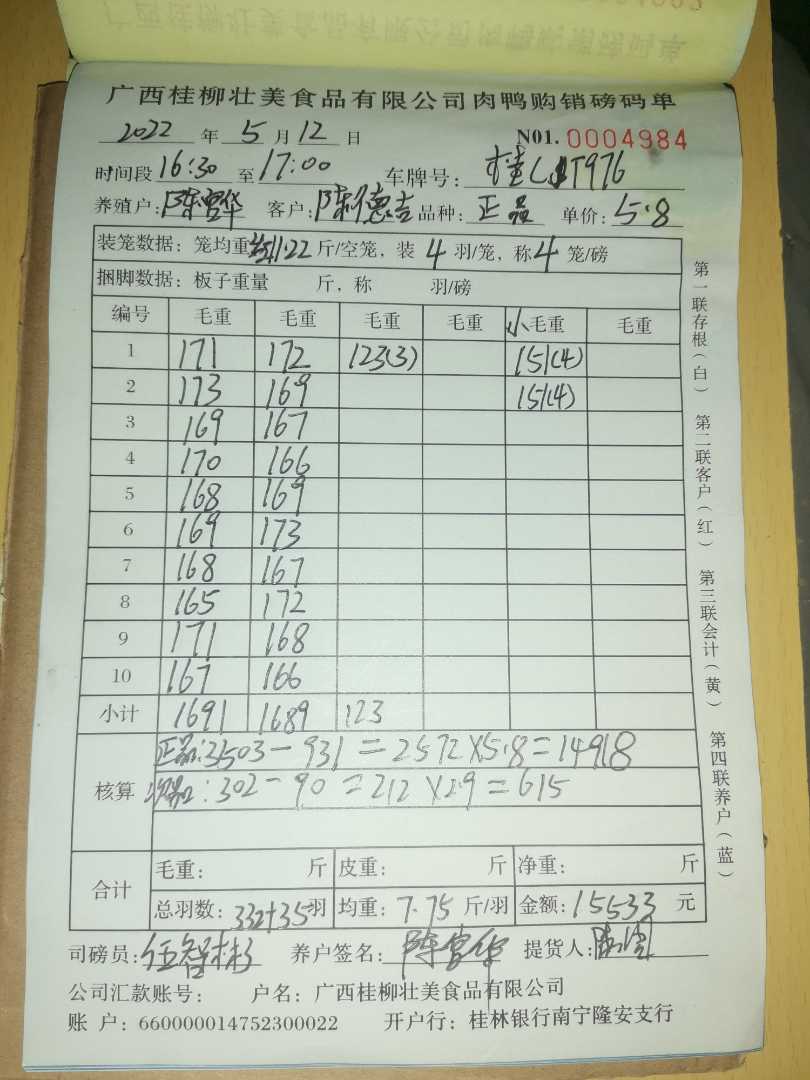 广西桂柳壮美食品有限公司肉鸭购销磅码单
2022 年 5 月 12 日 N01. 0004984
时间段 16:30 至 17:00 车牌号: 桂 T976
养殖户: 陈富华 客户: 陈德吉 品种: 正品 单价: 5.8
装笼数据: 笼均重 11.22 斤/空笼, 装 4 羽/笼, 称 4 笼/磅
捆脚数据: 板子重量 斤, 称 羽/磅
编号 毛重 毛重 毛重 毛重 小毛重 毛重
1 171 172 123(3) 151(4)
2 173 169 151(4)
3 169 167
4 170 166
5 168 169
6 169 173
7 168 167
8 165 172
9 171 168
10 167 166
小计 1691 1689 123
核算 正品: 3503 - 931 = 2572 × 5.8 = 14918
: 302 - 90 = 212 × 2.9 = 615
合计 毛重: 斤 皮重: 斤 净重: 斤
总羽数: 332+35 羽 均重: 7.75 斤/羽 金额: 15533 元
司磅员: 伍智彬 养户签名: 陈富华 提货人:
公司汇款账号: 户名: 广西桂柳壮美食品有限公司
账 户: 660000014752300022 开户行: 桂林银行南宁隆安支行
第一联存根(白) 第二联客户(红) 第三联会计(黄) 第四联养户(蓝)